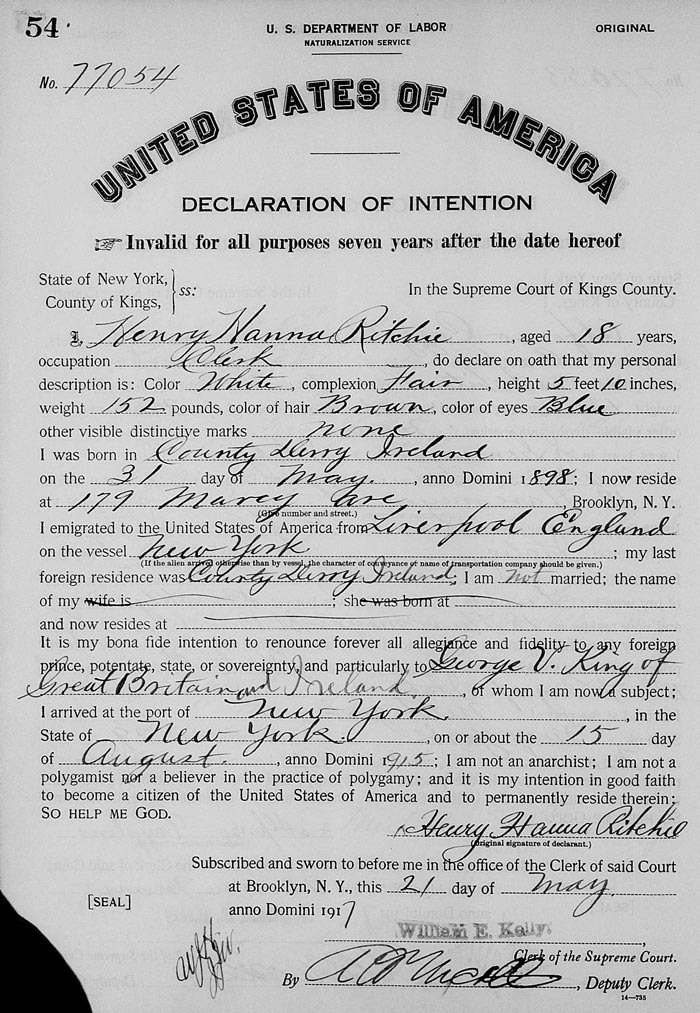 54
U. S. DEPARTMENT OF LABOR
NATURALIZATION SERVICE
ORIGINAL
No. 77054
UNITED STATES OF AMERICA
DECLARATION OF INTENTION
☞ Invalid for all purposes seven years after the date hereof
State of New York,
County of Kings,
ss:
In the Supreme Court of Kings County.
I, Henry Hanna Ritchie, aged 18 years,
occupation Clerk, do declare on oath that my personal
description is: Color White, complexion Fair, height 5 feet 10 inches,
weight 152 pounds, color of hair Brown, color of eyes Blue
other visible distinctive marks none
I was born in County Derry Ireland
on the 31 day of May., anno Domini 1898; I now reside
at 179 Marcy Ave Brooklyn, N. Y.
(Give number and street.)
I emigrated to the United States of America from Liverpool England
on the vessel New York; my last
(If the alien arrived otherwise than by vessel, the character of conveyance or name of transportation company should be given.)
foreign residence was County Derry Ireland; I am not married; the name
of my wife is ; she was born at
and now resides at
It is my bona fide intention to renounce forever all allegiance and fidelity to any foreign
prince, potentate, state, or sovereignty, and particularly to George V. King of
Great Britain and Ireland, of whom I am now a subject;
I arrived at the port of New York., in the
State of New York., on or about the 15 day
of August., anno Domini 1915; I am not an anarchist; I am not a
polygamist nor a believer in the practice of polygamy; and it is my intention in good faith
to become a citizen of the United States of America and to permanently reside therein;
SO HELP ME GOD.
Henry Hanna Ritchie
(Original signature of declarant.)
Subscribed and sworn to before me in the office of the Clerk of said Court
at Brooklyn, N. Y., this 21 day of May
[SEAL]
anno Domini 1917
William E. Kelly.
Clerk of the Supreme Court.
By , Deputy Clerk.
14—735